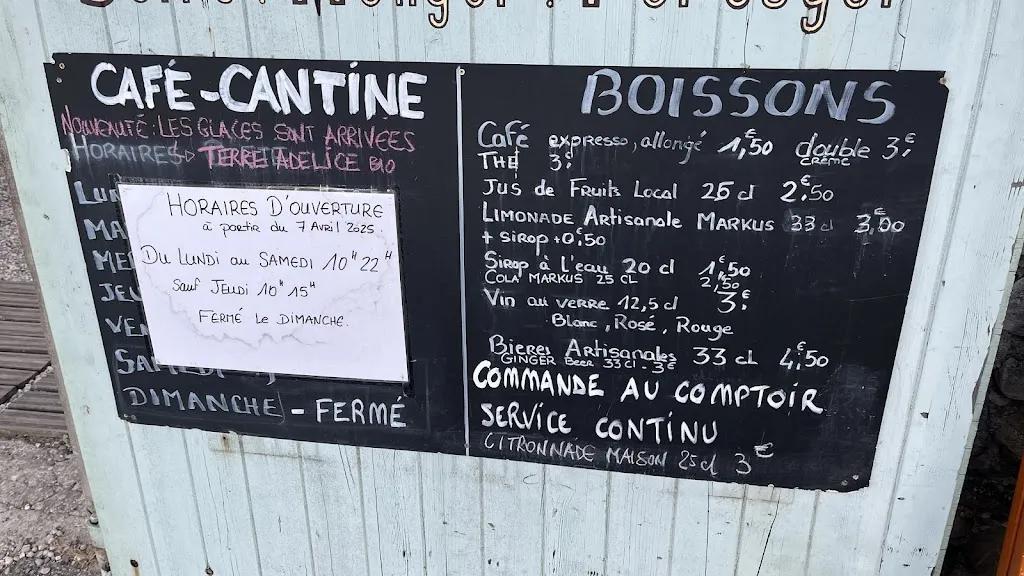 CAFÉ-CANTINE
NOUVEAUTÉ: LES GLACES SONT ARRIVÉES
HORAIRES TERRE ADELICE BIO
LUN
MA
ME
JEU
VEN
SAMEDI
DIMANCHE - FERMÉ
HORAIRES D'OUVERTURE
à partir du 7 Avril 2025.
DU LUNDI au SAMEDI 10H 22H
Sauf JEUDI 10H 15H
FERMÉ LE DIMANCHE.
BOISSONS
Café expresso, allongé 1,€50 double 3€
CRÈME
THÉ 3€
Jus de Fruits Local 25 cl 2,€50
LIMONADE Artisanale MARKUS 33 cl 3,€00
+ sirop +0,€50
Sirop à l'eau 20 cl 1,€50
COLA MARKUS 25 CL 2,50
Vin au verre 12,5 cl 3€
Blanc, Rosé, Rouge
Bieres Artisanales 33 cL 4,€50
GINGER BEER 33 cl - 3€
COMMANDE AU COMPTOIR
SERVICE CONTINU
CITRONNADE MAISON 25cl 3€